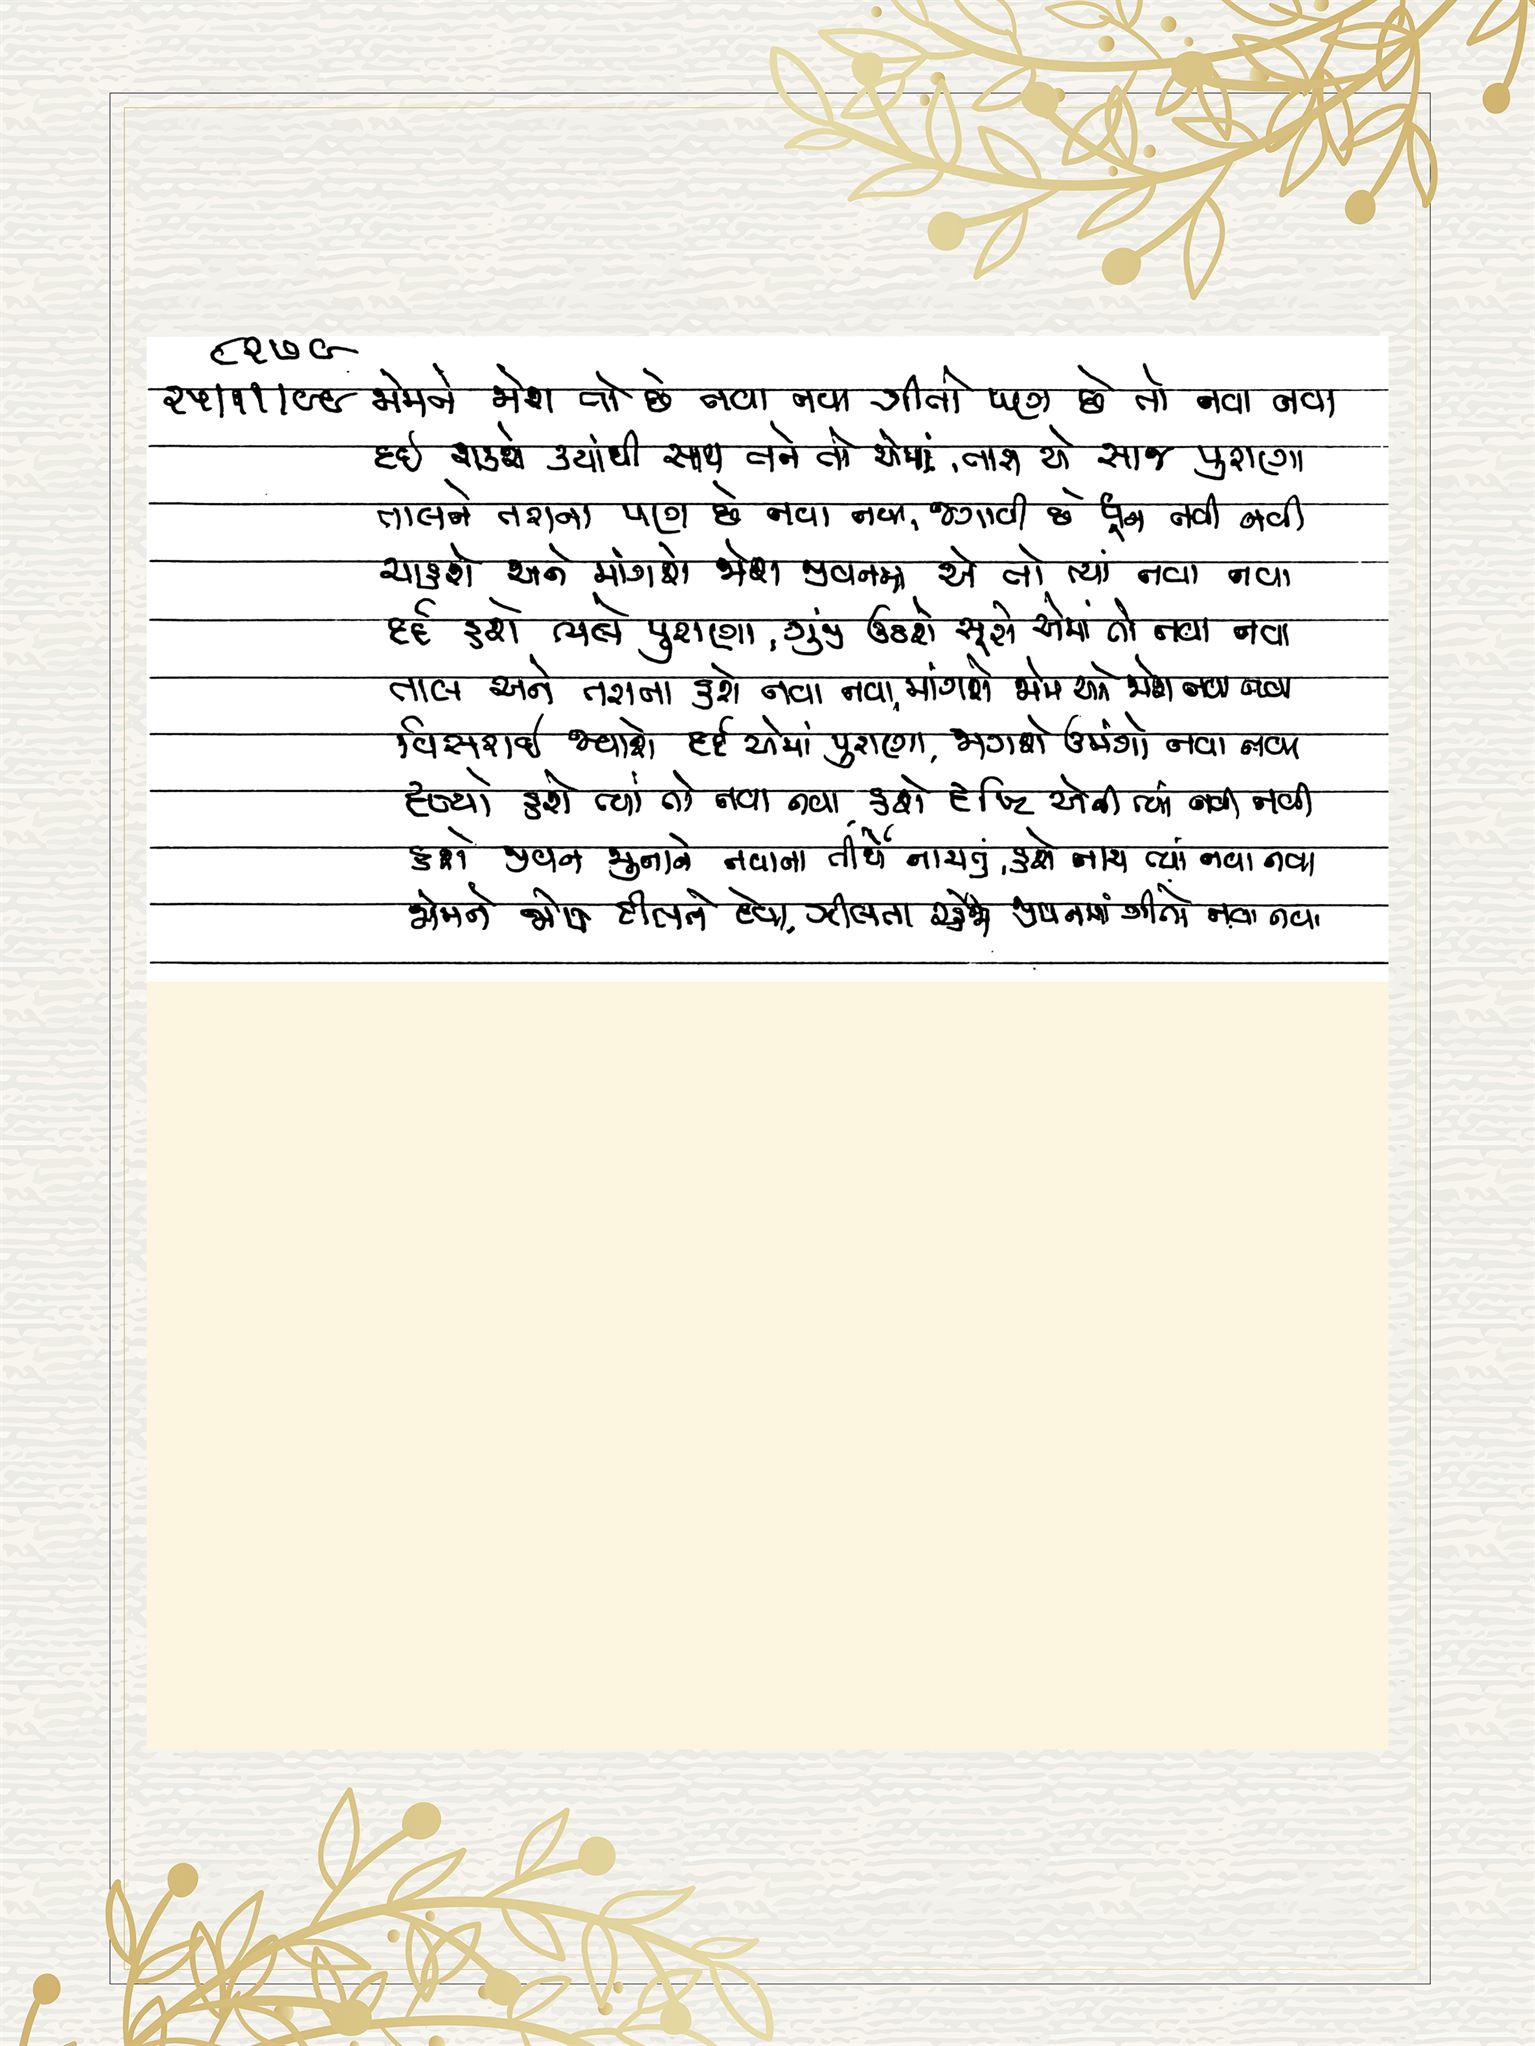 ૯૨૭૯
૨૫/૧૧/૯૯ પ્રેમને પ્રેરા તો છે નવા નવા ગીતો પણ છે તો નવા નવા
દઈ શકશે ક્યાંથી સાથ તને તો એમાં, તારા એ સાજ પુરાણા
તાલને તરાના પણ છે નવા નવા, જગાવી છે ધૂન નવી નવી
ચાહશે અને માંગશે જીવનમાં એ તો ત્યાં નવા નવા
દર્દ હશે ભલે પુરાણા, ગુંજી ઉઠશે સૂરો એમાં તો નવા નવા
તાલ અને તરાના હશે નવા નવા, માંગશે પ્રેમ અને નવા નવા
વિસરાઈ જાશે દર્દ એમાં પુરાણા, પ્રગટશે ઉમંગો નવા નવા
દૃશ્યો હશે ત્યાં તો નવા નવા, હશે દૃષ્ટિ એની ત્યાં નવી નવી
હશે જીવન જુનાને નવાના તીર્થે નાચતું, હશે નાચ ત્યાં નવા નવા
પ્રેમને દીલને દેવા, ઝીલતા રહેજે જીવનમાં ગીતો નવા નવા